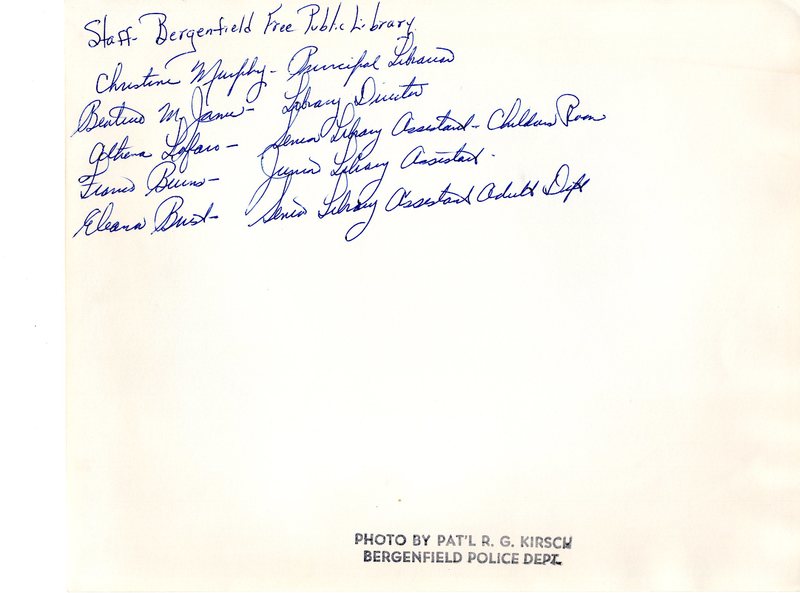 Staff- Bergenfield Free Public Library
Christine Murphy- Principal Librarian
Beatrice M. James- Library Director
Athena Lofaro- Senior Library Assistant- Childrens Room
Burns- Junior Library Assistant.
Eleanor Senior Library Assistant Adult Dept
PHOTO BY PAT'L R. G. KIRSCH
BERGENFIELD POLICE DEPT.